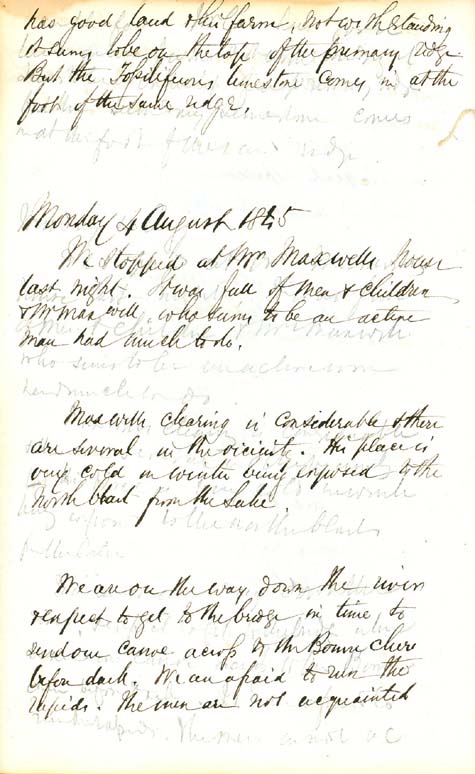 has good land & thin farm, not with standing
it seems to be on the top of the primary ridge
But the Fossiliferous limestone comes in at the
foot of the same ridge.
Monday 4 August 1845
We stopped at Mr Maxwells house
last night. It was full of men & children
& Mr Maxwell who seems to be an active
man had much to do.
Maxwells clearing is considerable & there
are several in the vicinity. His place is
very cold in winter being exposed to the
North blast from the Lake
We are on the way down the river
& expect to get to the bridge in time, to
send our canoe across to the Bonne chere
before dark. We are afraid to run the
rapids. The men are not acquainted